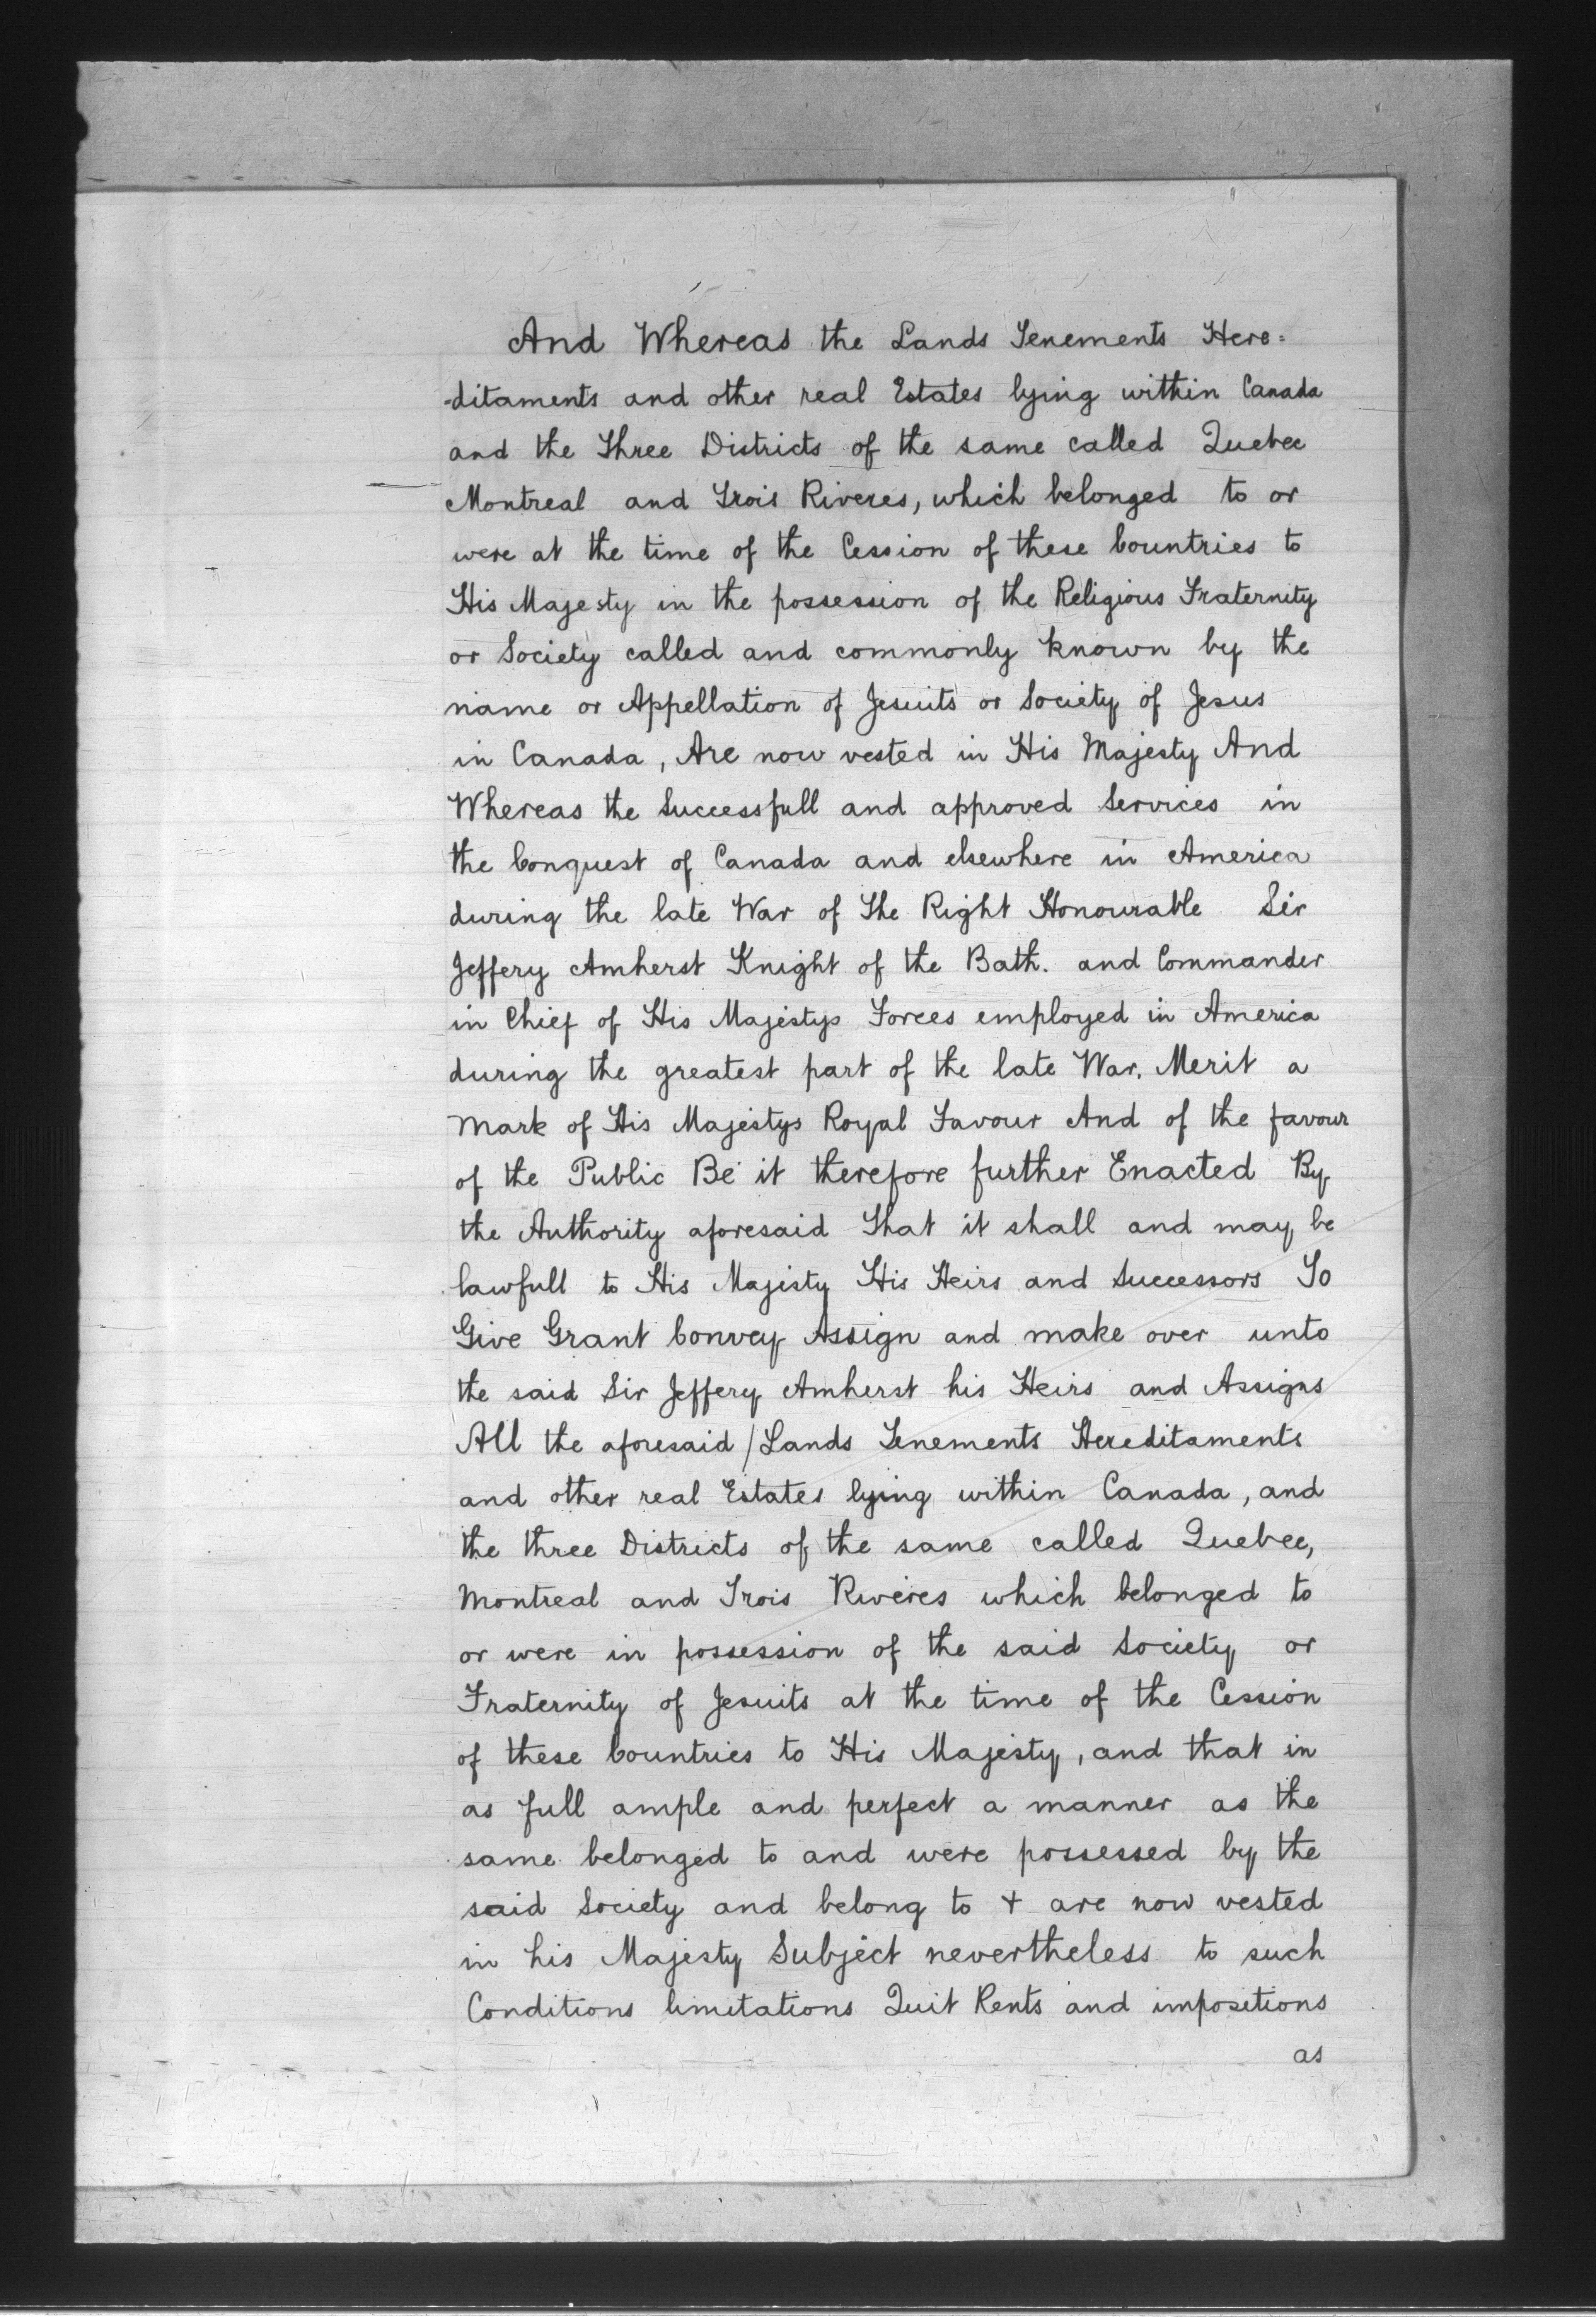 And Whereas the Lands Tenements Here=
-ditaments and other real Estates lying within Canada
and the Three Districts of the same called Quebec
Montreal and Trois Riveres, which belonged to or
were at the time of the Cession of these Countries to
His Majesty in the possession of the Religious Fraternity
or Society called and commonly known by the
name or Appellation of Jesuits or Society of Jesus
in Canada, Are now vested in His Majesty And
Whereas the Successfull and approved Services in
the Conquest of Canada and elsewhere in America
during the late War of The Right Honourable Sir
Jeffery Amherst Knight of the Bath. and Commander
in Chief of His Majestys Forces employed in America
during the greatest part of the late War. Merit a
Mark of His Majestys Royal Favour And of the favour
of the Public Be it therefore further Enacted By
the Authority aforesaid That it shall and may be
lawfull to His Majesty His Heirs and Successors To
Give Grant Convey Assign and make over unto
the said Sir Jeffery Amherst his Heirs and Assigns
All the aforesaid / Lands Tenements Hereditaments
and other real Estates lying within Canada, and
the three Districts of the same called Quebec,
Montreal and Trois Riveres which belonged to
or were in possession of the said Society or
Fraternity of Jesuits at the time of the Cession
of these Countries to His Majesty, and that in
as full ample and perfect a manner as the
same belonged to and were possessed by the
said Society and belong to + are now vested
in his Majesty Subject nevertheless to such
Conditions limitations Quit Rents and impositions
as